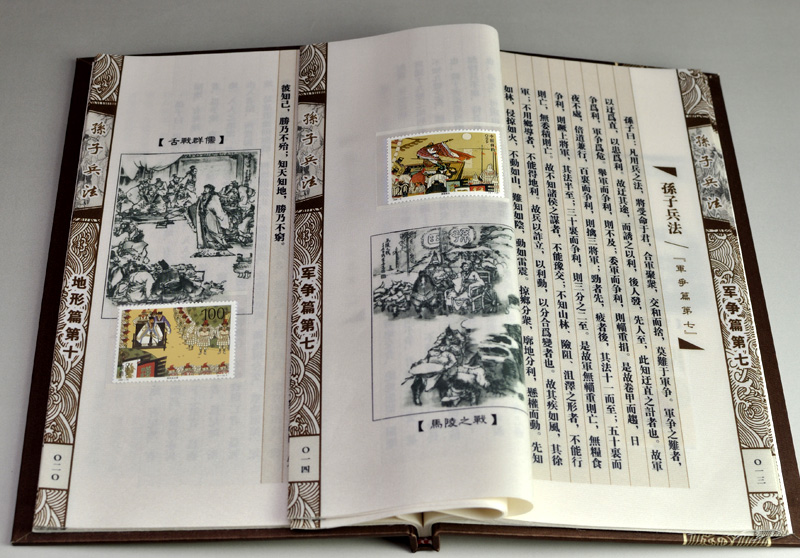 孫子兵法
军争篇第七
〇一三
孫子兵法
「軍争篇第七」
孫子曰:凡用兵之法,將受命于君,合軍聚衆,交和而捨,莫難于軍争。軍争之難者,
以迂爲直,以患爲利。故迂其途,而誘之以利,後人發,先人至,此知迂直之計者也。故軍
争爲利,軍争爲危。舉軍而争利,則不及;委軍而争利,則輜重捐。是故卷甲而趨,日
夜不處,倍道兼行,百裏而争利,則擒三將軍;勁者先,疲者後,其法十一而至;五十裏而
争利,則蹶上將軍,其法半至;三十裏而争利,則三分之二至。是故軍無輜重則亡,無糧食
則亡,無委積則亡。故不知諸侯之謀者,不能豫交;不知山林、險阻、沮澤之形者,不能行
軍;不用鄉導者,不能得地利。故兵以詐立,以利動,以分合爲變者也。故其疾如風,其徐
如林,侵掠如火,不動如山,難知如陰,動如雷震。掠鄉分衆,廓地分利,懸權而動。先知
【馬陵之戰】
孫子兵法
军争篇第七
〇一四
彼知己,勝乃不殆;知天知地,勝乃不窮。
【舌戰群儒】
100
孫子兵法
地形篇第十
〇二〇